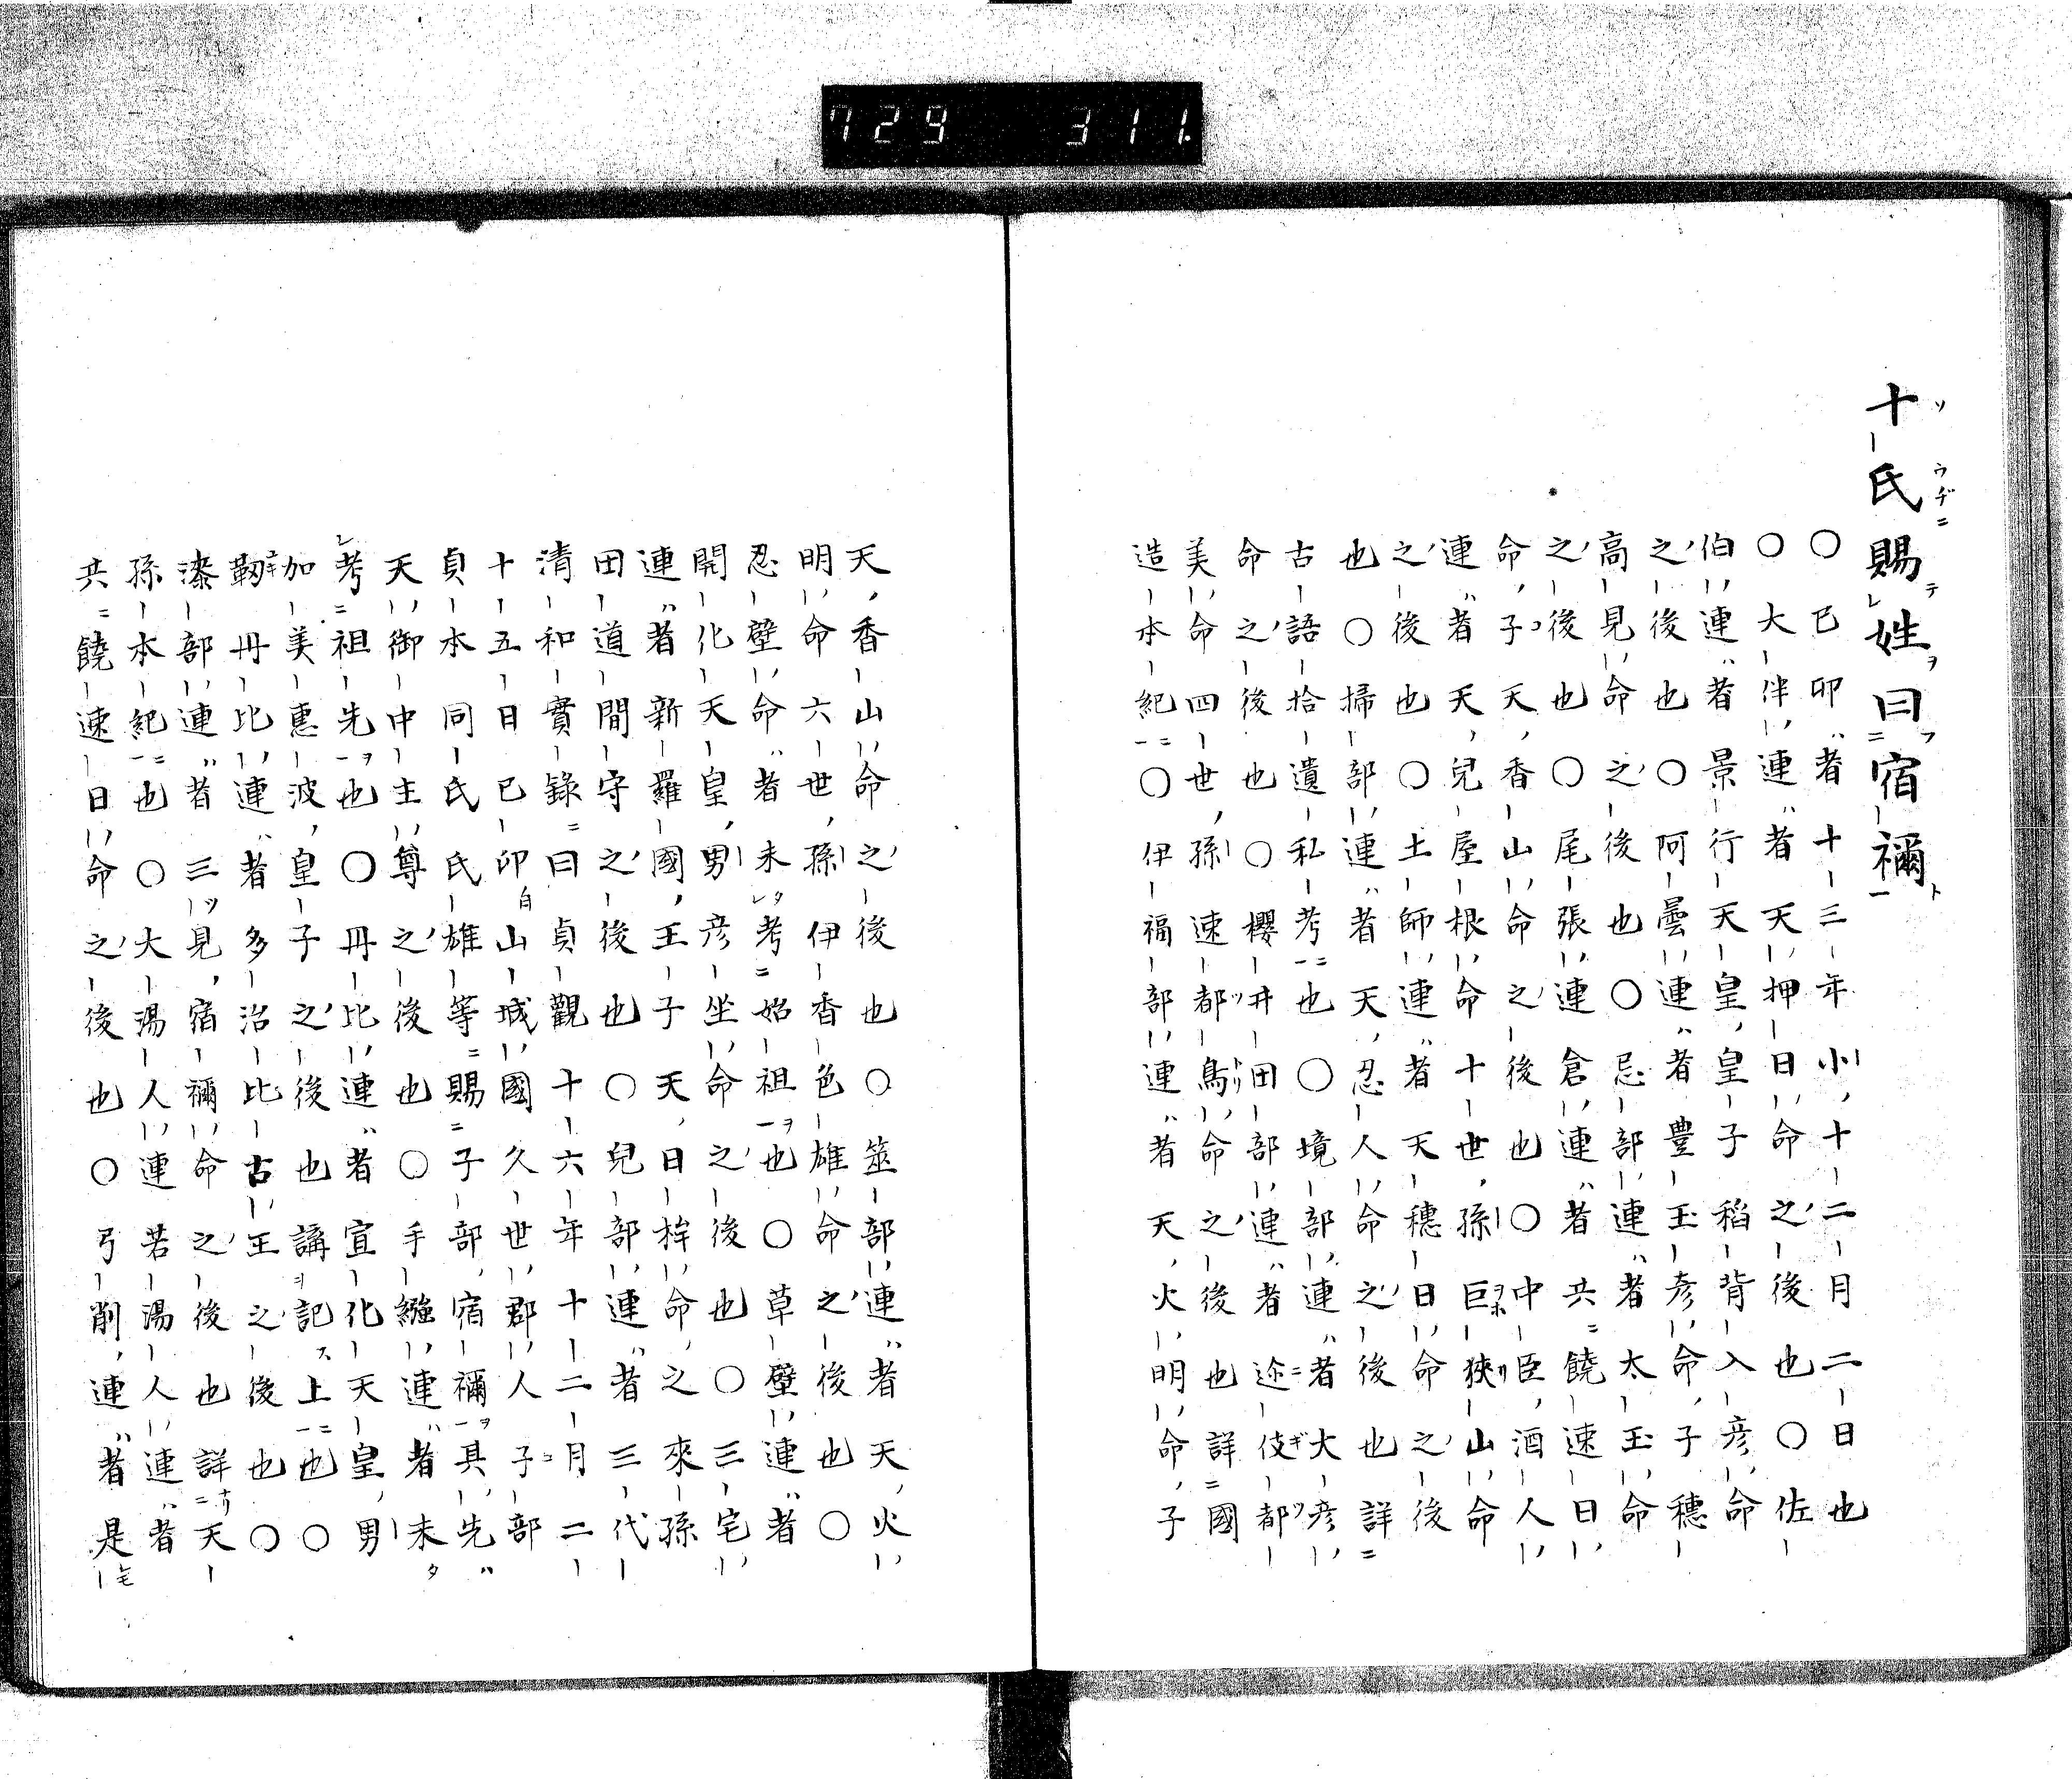 729 311.
十氏賜姓曰宿禰
〇己卯者十三年小十二月二日也
〇大伴連者天押日命之後也〇佐
伯連者景行天皇皇子稻背入彥命
之後也〇阿曇連者豊玉彥命子穗
高見命之後也〇忌部連者太玉命
之後也〇尾張連倉連者共饒速日
命子天香山命之後也〇中臣酒人
連者天兒屋根命十世孫巨狹山命
之後也〇土師連者天穗日命之後
也〇掃部連者天忍人命之後也詳
古語拾遺私考也〇境部連者大彥
命之後也〇櫻井田部連者迩伎都
美命四世孫速都鳥命之後也詳國
造本紀〇伊福部連者天火明命子
天香山命之後也〇巫部連者天火
明命六世孫伊香色雄命之後也〇
忍壁命者未考始祖也〇草壁連者
開化天皇男彥坐命之後也〇三宅
連者新羅國王子天日桙命之來孫
田道間守之後也〇兒部連者三代
清和實錄曰貞觀十六年十二月二
十五日己卯自山城國久世郡人子部
貞本同氏氏雄等賜子部宿禰其先
天御中主尊之後也〇手繦連者未
考祖先也〇丹比連者宣化天皇男
加美惠波皇子之後也講記上也〇
靱丹比連者多治比古王之後也〇
漆部連者三見宿禰命之後也詳天
孫本紀也〇大湯人連若湯人連者
共饒速日命之後也〇弓削連者是